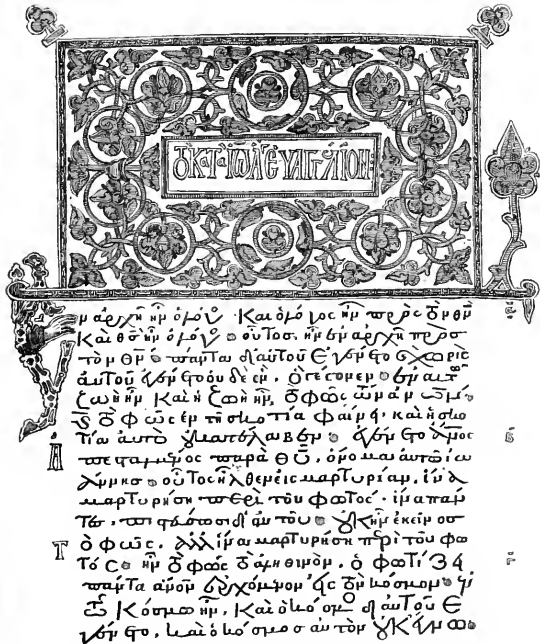 ΤΟ ΚΤΑ ΙΩΑ ΕΥΑΓΓΛΙΟΝ:
Ἐν ἀρχῆ ἦν ὁ λόγος · Καὶ ὁ λόγος ἦν πρὸς τὸν θν
Καὶ θς ἦν ὁ λόγος · οὗτος ἦν ἐν ἀρχῆ πρὸς
τὸν θν · πάντα δι αὐτοῦ ἐγένετο χωρὶς
αὐτοῦ ἐγένετο οὐδὲ ἕν. ὃ γέγονεν · ἐν αὐτῶ
ζωὴ ἦν καὶ ἡ ζωὴ ἦν, τὸ φῶς τῶν ἀνων ·
τὸ φῶς ἐν τῆ σκοτία φαίνει · καὶ ἡ σκο
τία αὐτὸ οὐ κατέλαβεν · ἐγένετο ἄνος
ἀπεσταλμένος παρὰ θῦ, ὄνομα αὐτῶ ἰω
άννησ · οὗτος ἦλθεν εἰς μαρτυρίαν, ἵνα
μαρτυρήση περὶ τοῦ φωτός · ἵνα πάν
τες πιστεύσωσι δι αὐτοῦ · οὐκ ἦν ἐκεῖνοσ
τὸ φῶς. ἀλλ ἵνα μαρτυρήση περὶ τοῦ φω
τός · ἦν τὸ φῶς τὸ ἀληθινὸν. ὃ φωτίζει
πάντα ἄνον ἐρχόμενον εἰς τὸν κόσμον · ἐν
τῶ κόσμω ἦν, Καὶ ὁ κόσμος δι αὐτοῦ ἐ
γένετο, καὶ ὁ κόσμος αὐτὸν οὐκ ἔγνω ·